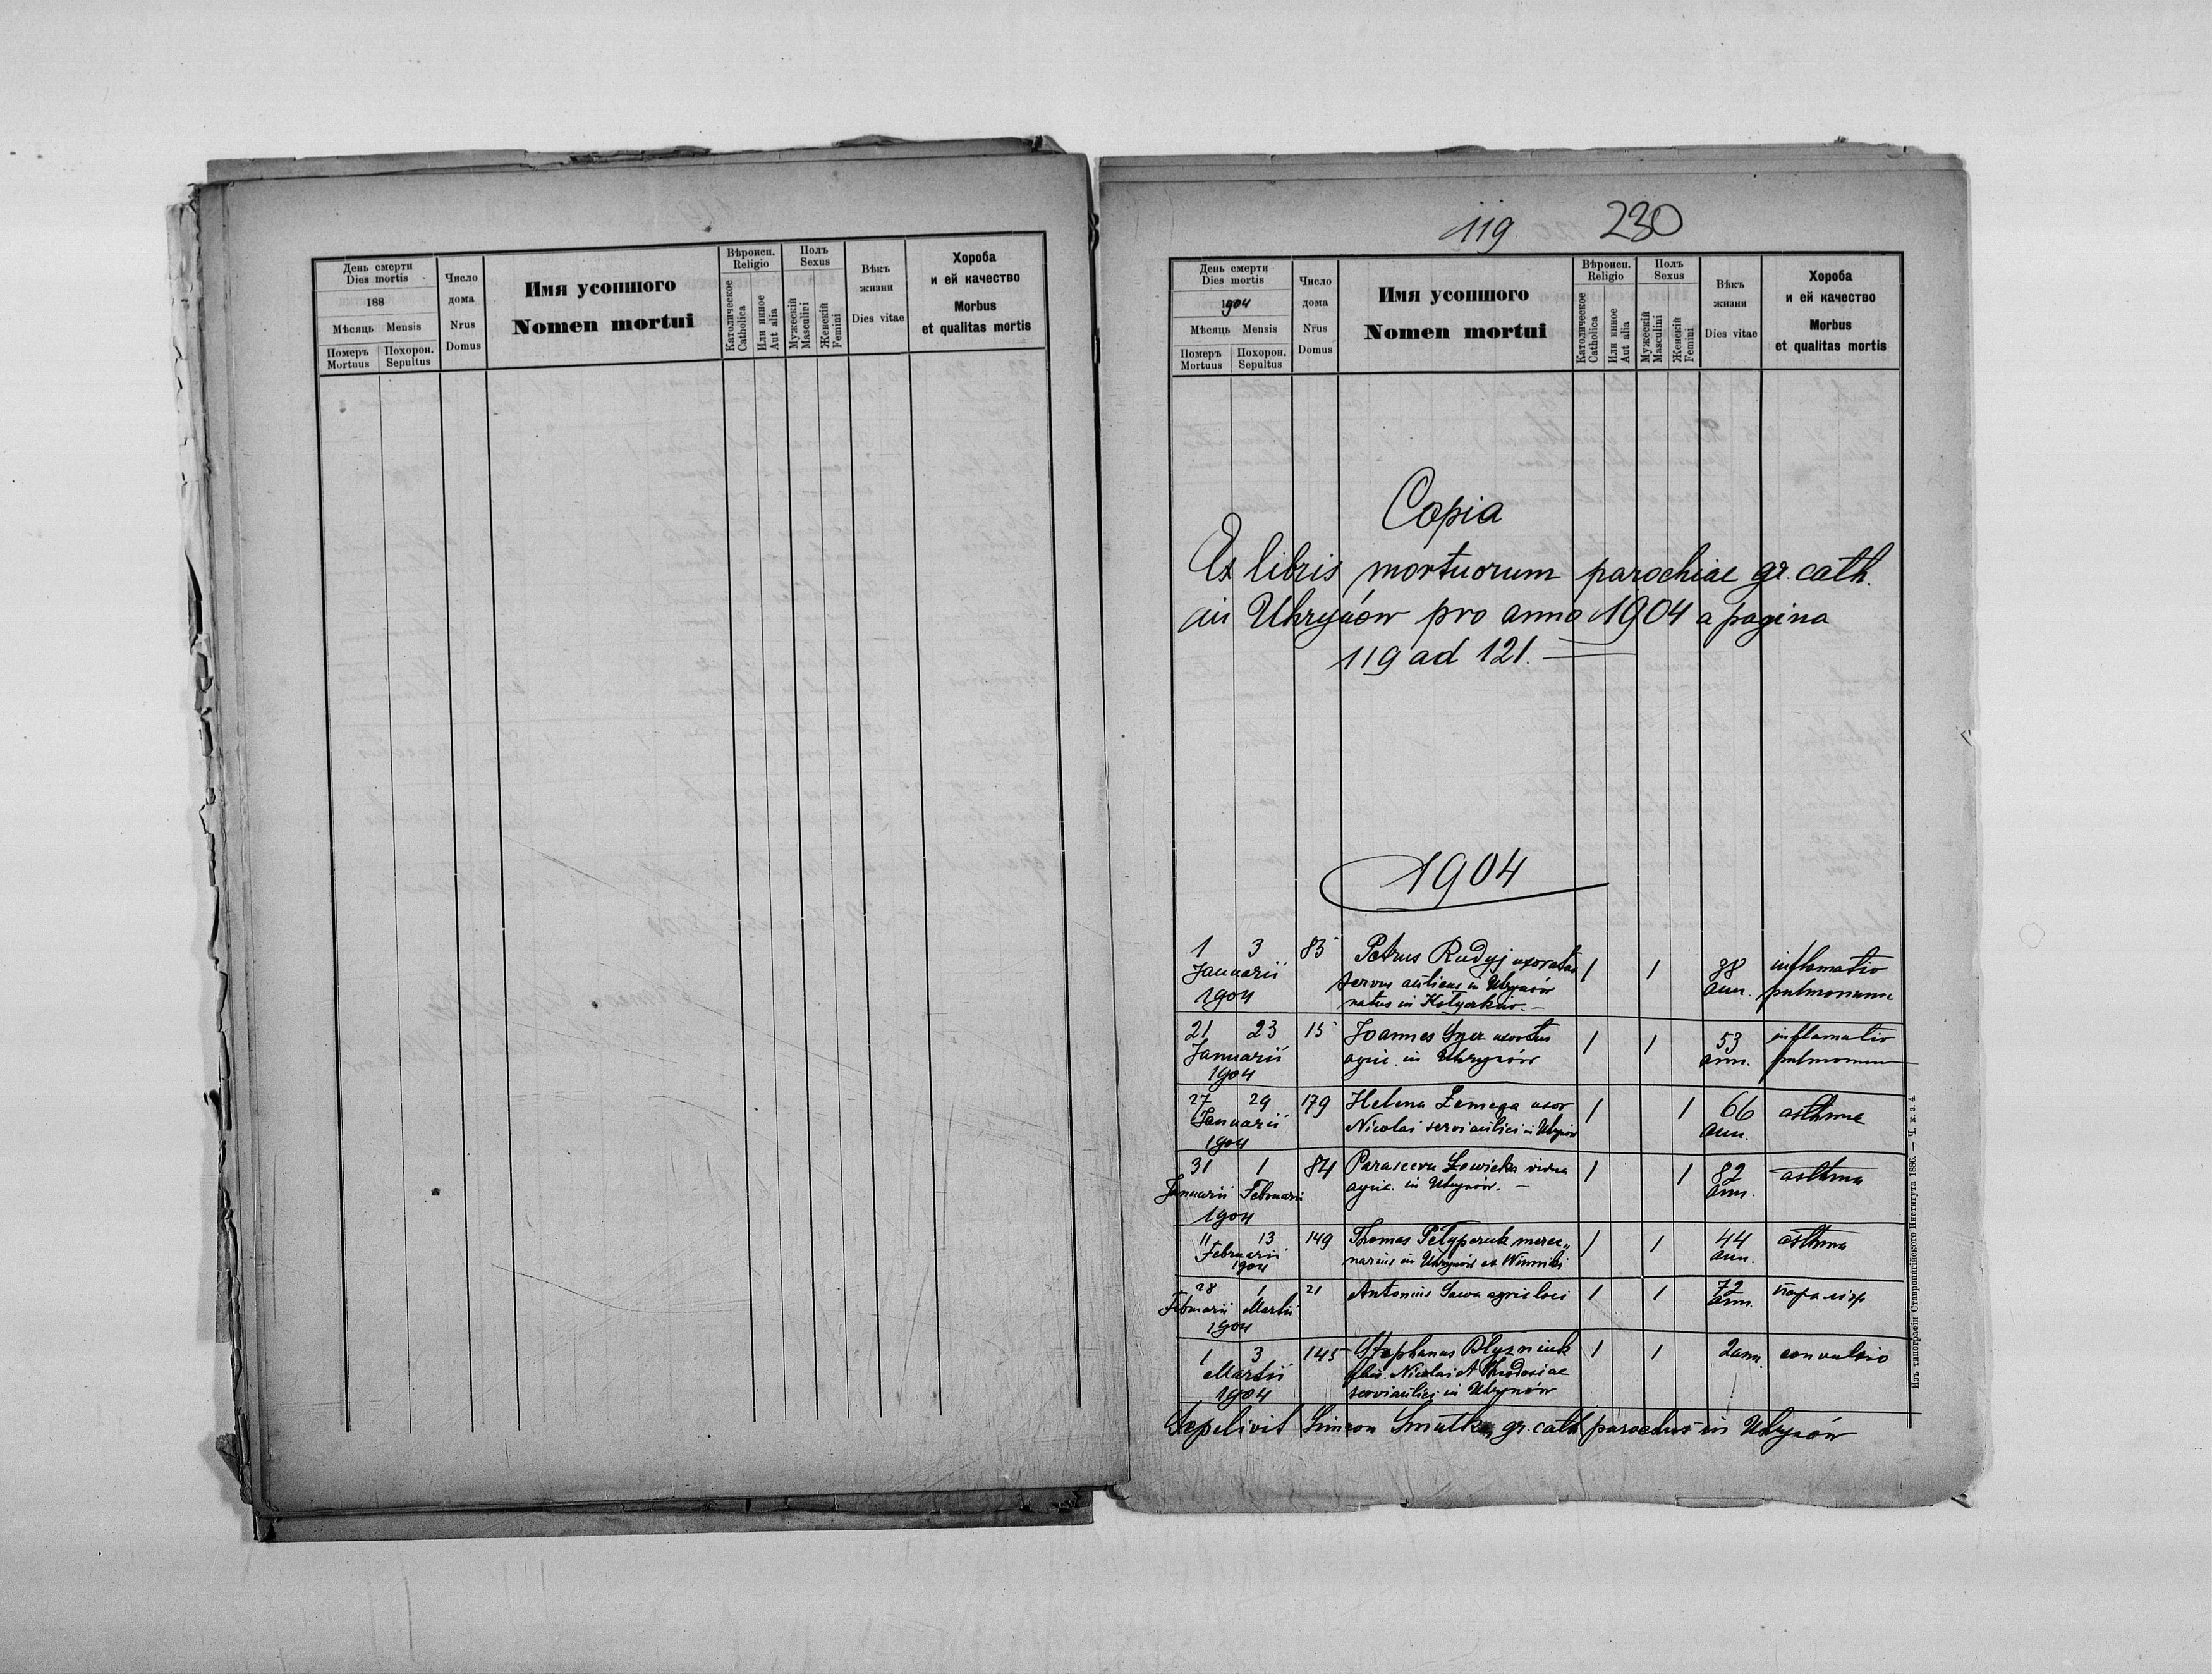 День смерти
Dies mortis
188
Мѣсяць Mensis
Померъ
Mortuus
Похорон.
Sepultus
Число
дома
Nrus
Domus
Имя усопшого
Nomen mortui
Вѣроисп.
Religio
Католическое
Catholica
Или инное
Aut alia
Полъ
Sexus
Мужескій
Masculini
Женскій
Femini
Вѣкъ
жизни
Dies vitae
Хороба
и ей качество
Morbus
et qualitas mortis
119 230
День смерти
Dies mortis
1904
Мѣсяць Mensis
Померъ
Mortuus
Похорон.
Sepultus
Число
дома
Nrus
Domus
Имя усопшого
Nomen mortui
Вѣроисп.
Religio
Католическое
Catholica
Или инное
Aut alia
Полъ
Sexus
Мужескій
Masculini
Женскій
Femini
Вѣкъ
жизни
Dies vitae
Хороба
и ей качество
Morbus
et qualitas mortis
Copia
Ex libris mortuorum parochiae gr. cath.
in Uhrynów pro anno 1904 a pagina
119 ad 121. —
1904
1 3 85 Petrus Rudyj uxoratus 1 1 38 inflamatio
Januarii servus aulicus in Uhrynów ann. pulmonum
1904 natus in
21 23 15 Joannes uxoratus 1 1 53 inflamatio
Januarii agric. in Uhrynów ann. pulmonum
1904
27 29 179 Helena uxor 1 1 66 asthma
Januarii Nicolai servi aulici in Uhrynów ann.
1904
31 1 84 Parasceva vidua 1 1 82 asthma
Januarii Februarii agric. in Uhrynów. — ann.
1904
11 13 149 Thomas merce„ 1 1 44 asthma
Februarii narius in Uhrynów ann.
1904
28 1 21 Antonius Sawa agric loci 1 1 72
Februarii Martii ann.
1904
1 3 145 Stephanus Blyzniuk 1 1 2 ann. convulsio
Martii filius Nicolai et Theodosiae
1904 servi aulici in Uhrynów
Sepelivit Simeon gr. cath parochus in Uhrynów
Изъ типографіи Ставропигійского Института 1886. — Ч. к. з. 4.